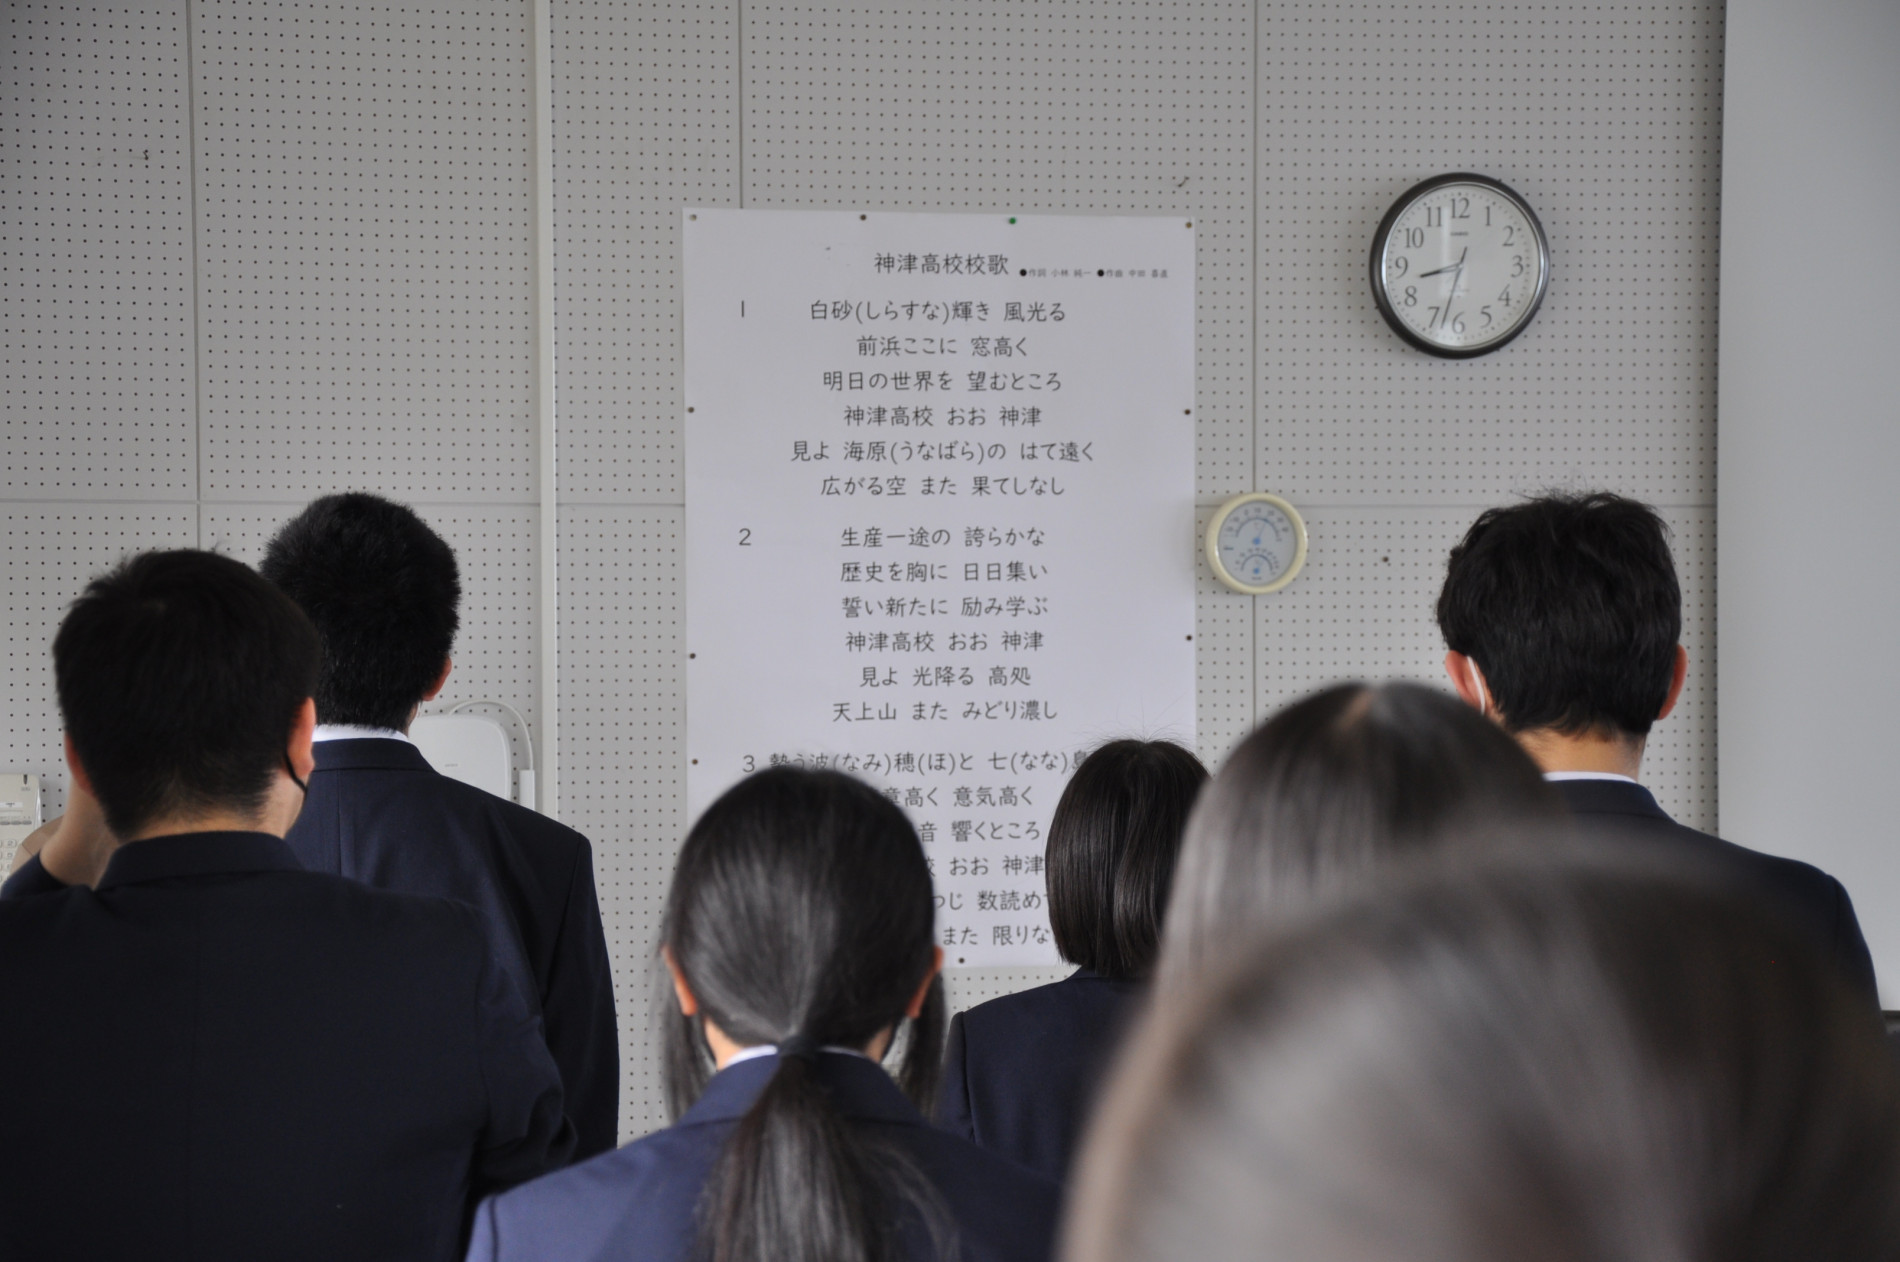 神津高校校歌 ●作詞 小林 純一 ●作曲 中田 喜直
1 白砂(しらすな)輝き 風光る
前浜ここに 窓高く
明日の世界を 望むところ
神津高校 おお 神津
見よ 海原(うなばら)の はて遠く
広がる空 また 果てしなし
2 生産一途の 誇らかな
歴史を胸に 日日集い
誓い新たに 励み学ぶ
神津高校 おお 神津
見よ 光降る 高処
天上山 また みどり濃し
3 勢う波(なみ)穂(ほ)と 七(なな)島
章高く 意気高く
音 響くところ
校 おお 神津
つじ 数読め
また 限りな
12
1
2
3
4
5
6
7
8
9
10
11